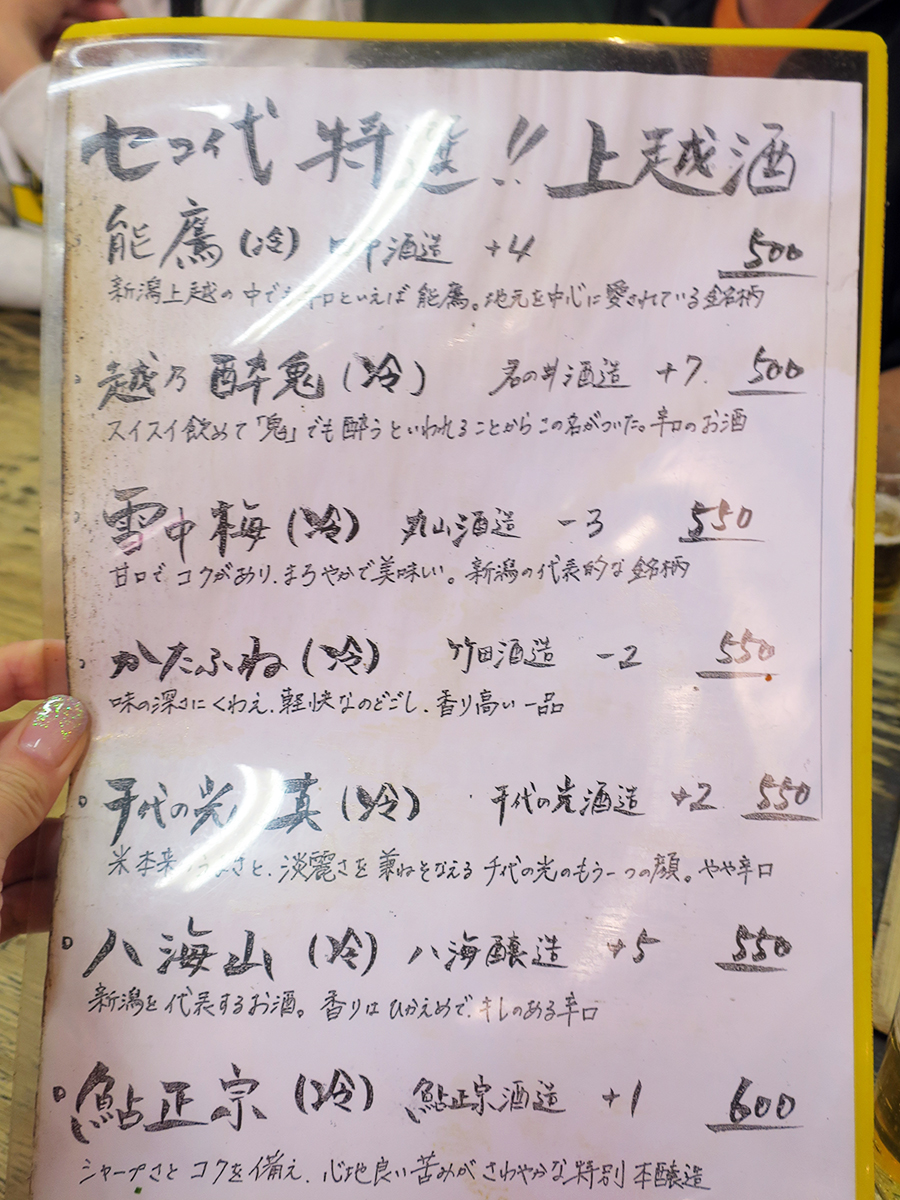 セコ代 特選!! 上越酒
能鷹(冷) 田中酒造 +4 500
新潟上越の中でも辛口といえば能鷹。地元を中心に愛されている銘柄
越乃酔鬼(冷) 君の井酒造 +7. 500
スイスイ飲めて「鬼」でも酔うといわれることからこの名がついた。辛口のお酒
雪中梅(冷) 丸山酒造 -3 550
甘口で、コクがあり、まろやかで美味しい。新潟の代表的な銘柄
かたふね(冷) 竹田酒造 -2 550
味の深さにくわえ、軽快なのどごし、香り高い一品
千代の光 真(冷) 千代の光酒造 +2 550
米本来のうまさと、淡麗さを兼ねそなえる千代の光のもう一つの顔。やや辛口
八海山(冷) 八海醸造 +5 550
新潟を代表するお酒。香りはひかえめで、キレのある辛口
鮎正宗(冷) 鮎正宗酒造 +1 600
シャープさとコクを備え、心地良い苦みがさわやかな特別本醸造